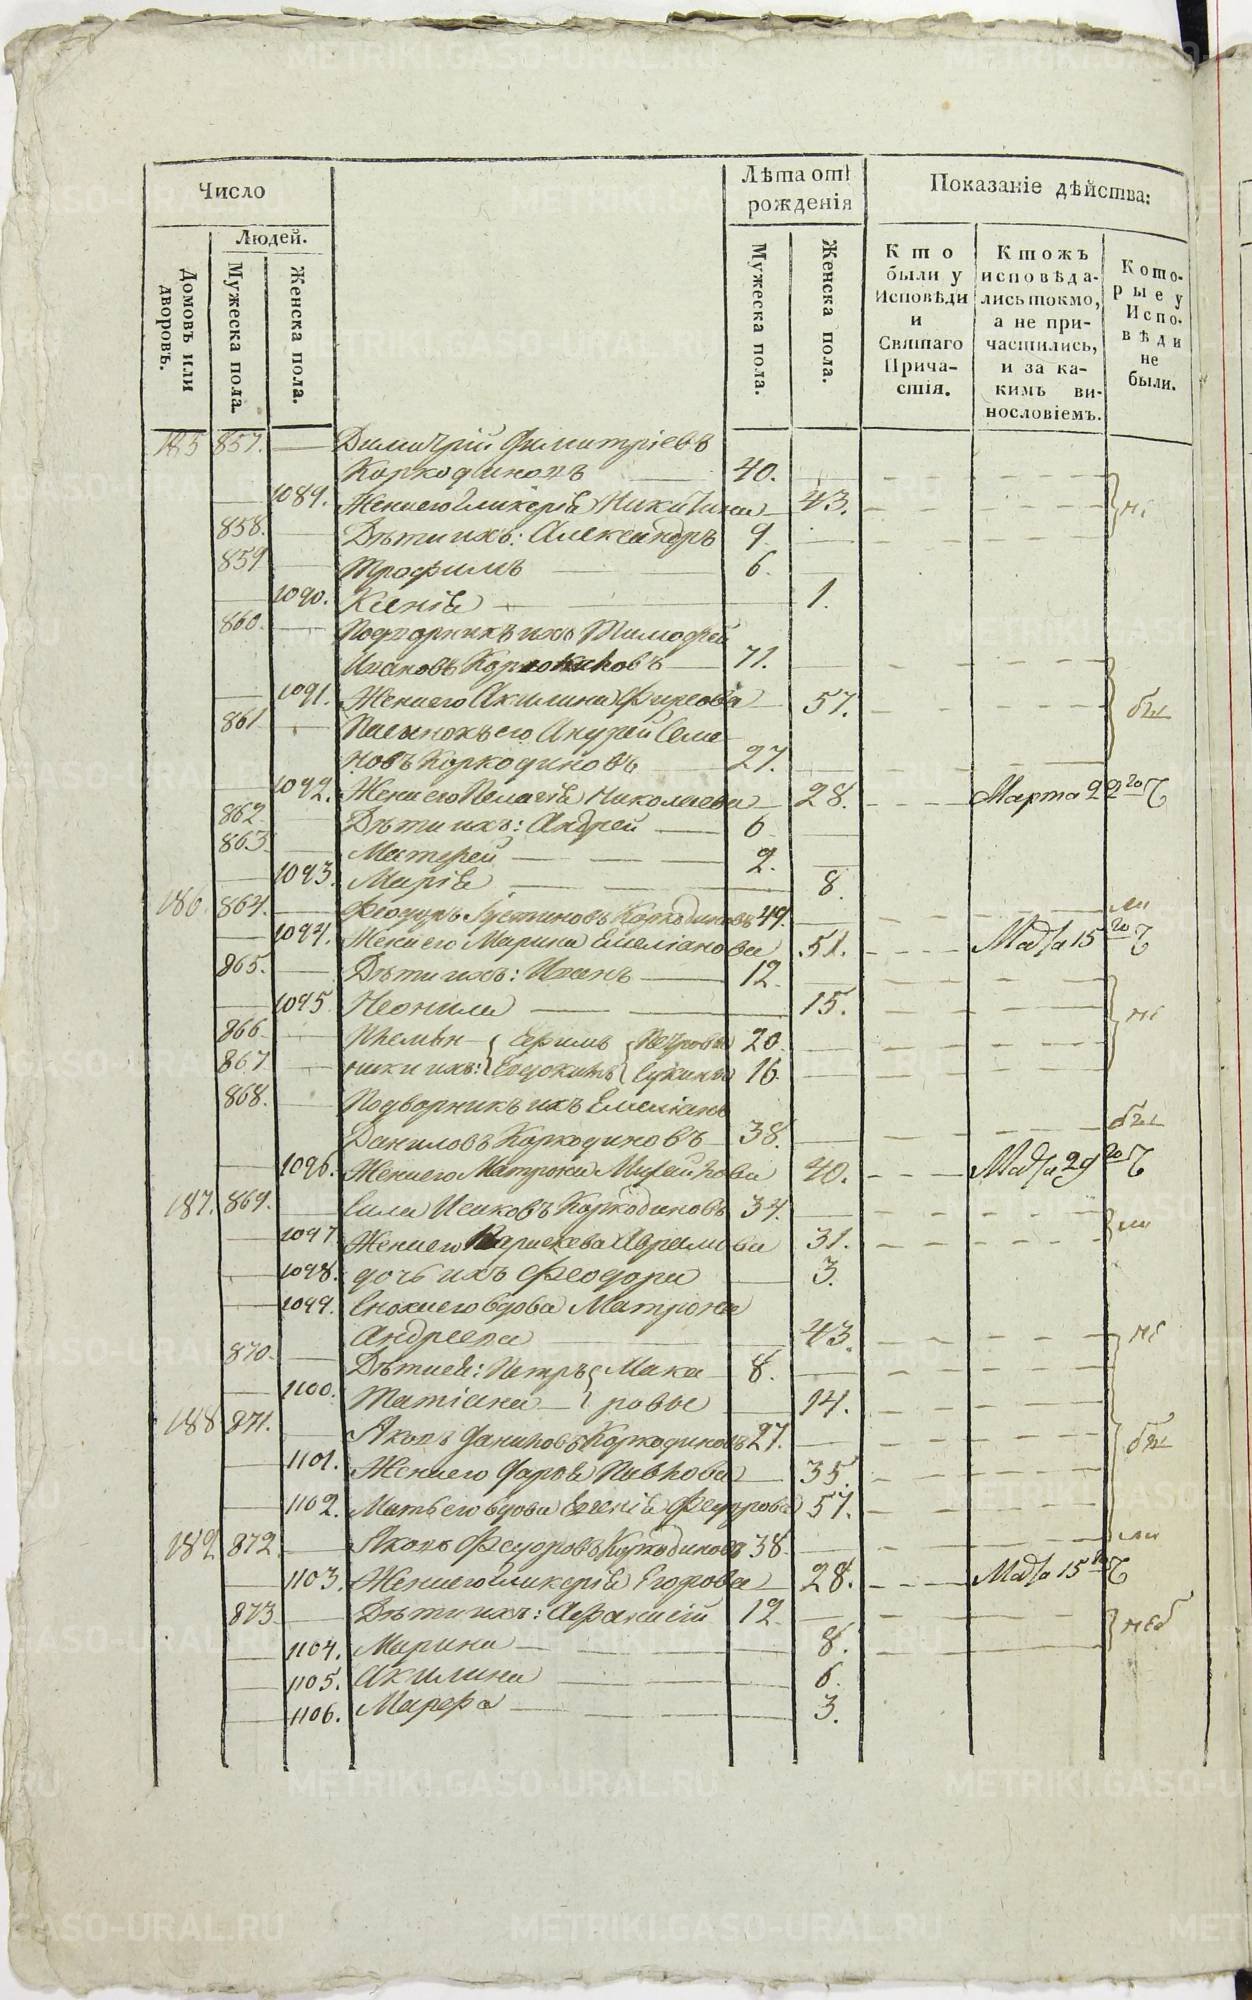 Число
Людей.
Домовъ или дворовъ.
Мужеска пола.
Женска пола.
Лѣта отъ рожденія
Мужеска пола.
Женска пола.
Показаніе дѣйства:
Кто были у Исповѣди и Святаго Причастія.
Ктожъ исповѣдались токмо, а не причастились, и за какимъ винословіемъ.
Которые у Исповѣди не были.
185 857. Димитрій Димитріевъ
Коркодиновъ 40.
1089. Жена его Гликерія Никитина 43.
858. Дѣти ихъ: Александръ 9
859 Трофимъ 6.
1090. Ксенія 1.
860. Подворникъ ихъ Тимофей
Ивановъ Коркодиновъ 71.
1091. Жена его Акилина Фирсова 57.
861 Пасынокъ его Андрей Семе
новъ Коркодиновъ 27.
1092. Жена его Пелагія Николаева 28. Марта 22го
862. Дѣти ихъ: Андрей 6
863. Матфей 2.
1093. Марія 8.
186. 864. Феодоръ Іустиновъ Коркодиновъ 49.
1094. Жена его Марина Емеліанова 51. Маія 15го
865. Дѣти ихъ: Иванъ 12
1095 Неонила 15.
866. Племян Ефимъ Петровы 20.
867 ники ихъ: Евдокимъ 16
868. Подворникъ ихъ Емеліанъ
Даниловъ Коркодиновъ 38.
1096. Жена его Матрона Михайлова 40. Маія 29го
187. 869. Сила Исаковъ Коркодиновъ 34.
1097 Жена его Параскева Авраамова 31.
1098. дочь ихъ Феодора 3.
1099. Сноха его вдова Матрона
Андреева 43.
870. Дѣти ея: Петръ Мака 8.
1100. Татіана ровы 14.
188 871. Яковъ Даниловъ Коркодиновъ 27.
1101. Жена его Дарія Павлова 35.
1102. Мать его вдова Евгенія Федорова 57.
189 872. Яковъ Федоровъ Коркодиновъ 38
1103. Жена его Гликерія Егорова 28. Маія 15го
873 Дѣти ихъ: Афанасій 12
1104. Марина 8.
1105. Акилина 6.
1106. Марфа 3.
METRIKI.GASO-URAL.RU